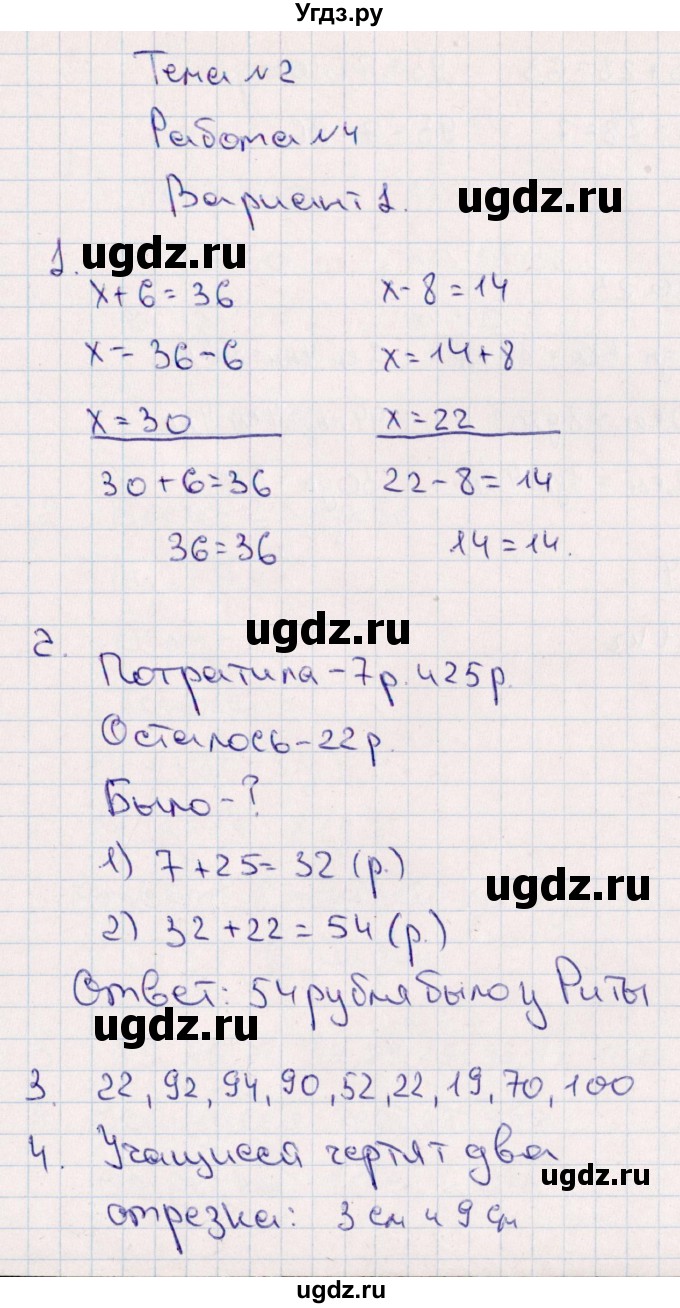 Угдз.ру
Тема №2
Работа №4
Вариант 1.
ugdz.ru
1.
ugdz.ru
x+6=36 x-8=14
x=36-6 x=14+8
x=30 x=22
30+6=36 22-8=14
36=36 14=14.
ugdz.ru
2.
Потратила-7р. и 25р.
Осталось-22р.
Было-?
1) 7+25=32 (р.)
ugdz.ru
2) 32+22=54 (р.)
Ответ: 54 рубля было у Риты
ugdz.ru
3. 22, 92, 94, 90, 52, 22, 19, 70, 100
4. Учащиеся чертят два
ugdz.ru
отрезка: 3 см и 9 см
ugdz.ru